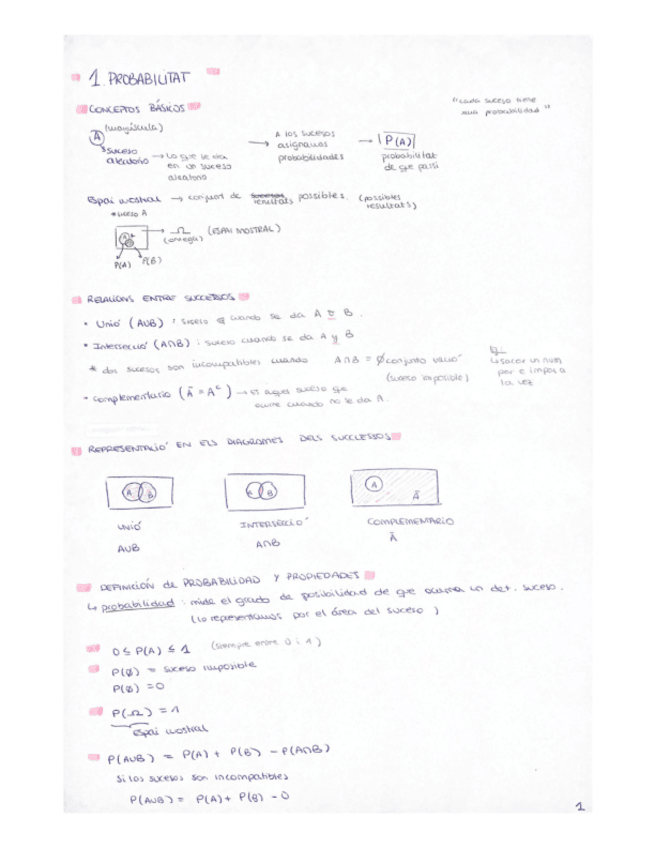 1. PROBABILITAT
CONCEPTOS BÁSICOS
"cada suceso tiene
una probabilidad"
(mayúscula)
A
suceso
aleatorio → Lo que se da
en un suceso
aleatorio
→ A los sucesos
asignamos
probabilidades
→ P(A)
probabilitat
de que passi
Espai mostral → conjunt de resultats possibles. (possibles
resultats)
* suceso A
A B → Ω (ESPAI MOSTRAL)
(omega)
P(A) P(B)
RELACIONS ENTRE SUCCESSOS
• Unió (A∪B) : suceso cuando se da A o B.
• Intersecció (A∩B) : suceso cuando se da A y B
* dos sucesos son incompatibles cuando A∩B = ∅ conjunto vacío
(suceso imposible)
Ej
↳ sacar un num
par e impar a
la vez
• complementario (Ā = Aᶜ) → es aquel suceso que
ocurre cuando no se da A.
REPRESENTACIÓ EN ELS DIAGRAMES DELS SUCCESSOS
A B
A B
A Ā
UNIÓ
A∪B
INTERSECCIÓ
A∩B
COMPLEMENTARIO
Ā
DEFINICIÓN de PROBABILIDAD Y PROPIEDADES
↳ probabilidad : mide el grado de posibilidad de que ocurra un det. suceso.
(lo representamos por el área del suceso)
0 ≤ P(A) ≤ 1 (siempre entre 0 i 1)
P(∅) = suceso imposible
P(∅) = 0
P(Ω) = 1
Espai mostral
P(A∪B) = P(A) + P(B) - P(A∩B)
Si los sucesos son incompatibles
P(A∪B) = P(A) + P(B) - 0
1